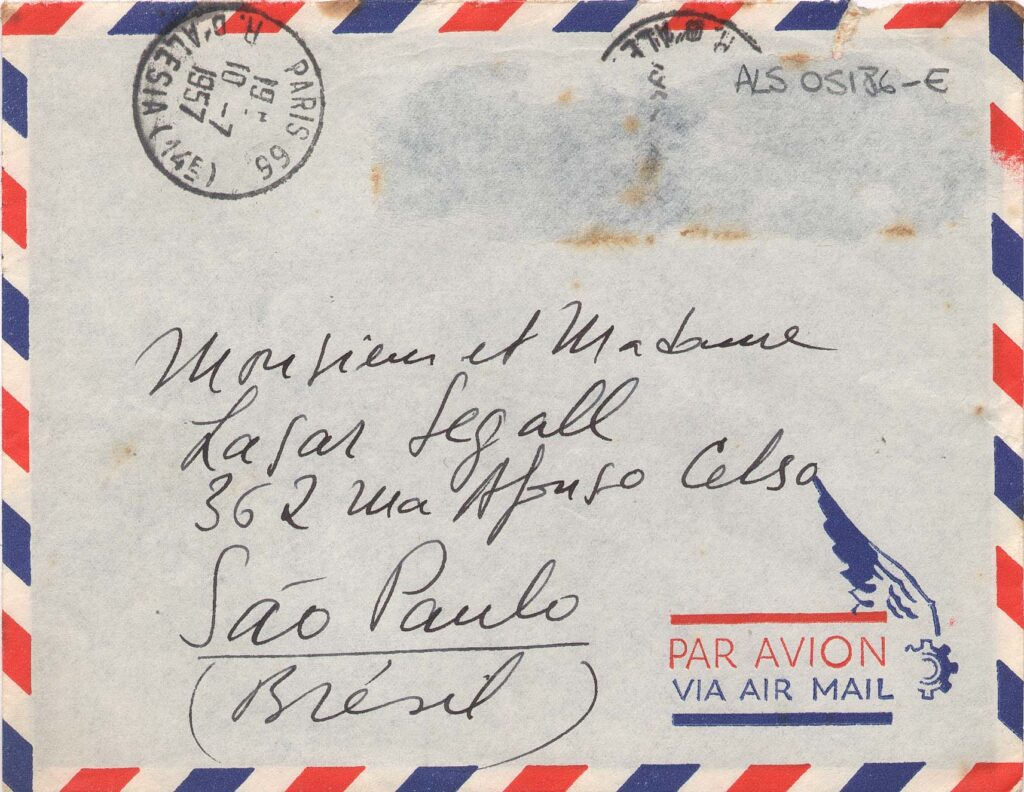 PARIS 68
19H
10-7
1957
R. D'ALESIA (14E)
R. D'ALE
ALS 05186-E
Monsieur et Madame
Lasar Segall
362 rua Afonso Celso
São Paulo
(Brésil)
PAR AVION
VIA AIR MAIL